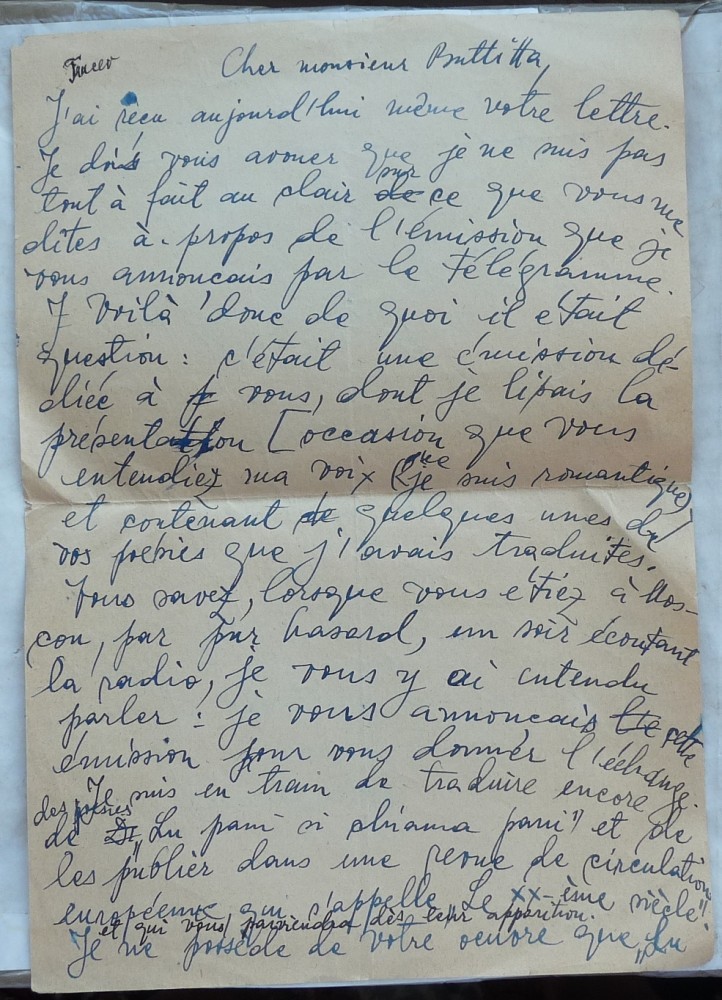 Cher monsieur Buttitta,
J'ai reçu aujourd'hui même votre lettre.
Je dois vous avouer que je ne suis pas
tout à fait au clair sur ce que vous me
dites à-propos de l'émission que je
vous annoncais par le télégramme.
Voilà donc de quoi il était
question: c'était une émission dé-
diée à vous, dont je lisais la
présentation [occasion que vous
entendiez ma voix (que je suis romantique)]
et contenant quelques unes de
vos poésies que j'avais traduites.
Vous savez, lorsque vous étiez à Mos-
cou, par pur hasard, un soir écoutant
la radio, je vous y ai entendu
parler: je vous annoncais cette
émission pour vous donner l'échange.
Je suis en train de traduire encore
des poésies de "Lu pani si chiama pani" et de
les publier dans une revue de circulation
européenne qui s'appelle "Le XX-ème siècle"
et qui vous parviendra dès leur apparition.
Je ne possède de votre oeuvre que "Lu